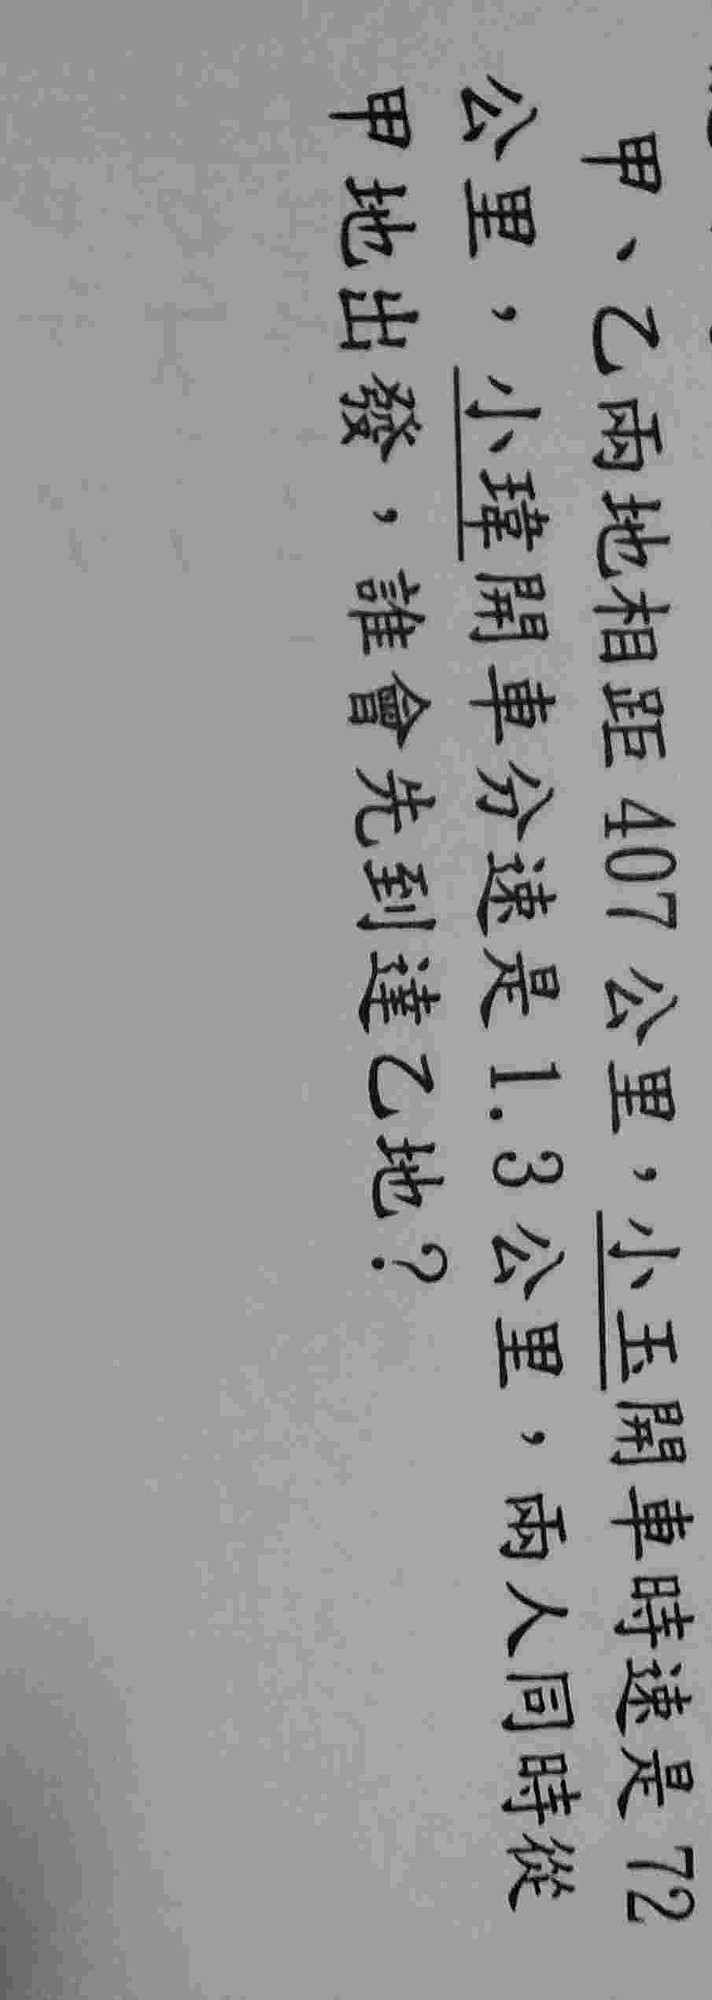 甲、乙兩地相距 407 公里，小玉開車時速是 72
公里，小瑋開車分速是 1.3 公里，兩人同時從
甲地出發，誰會先到達乙地？